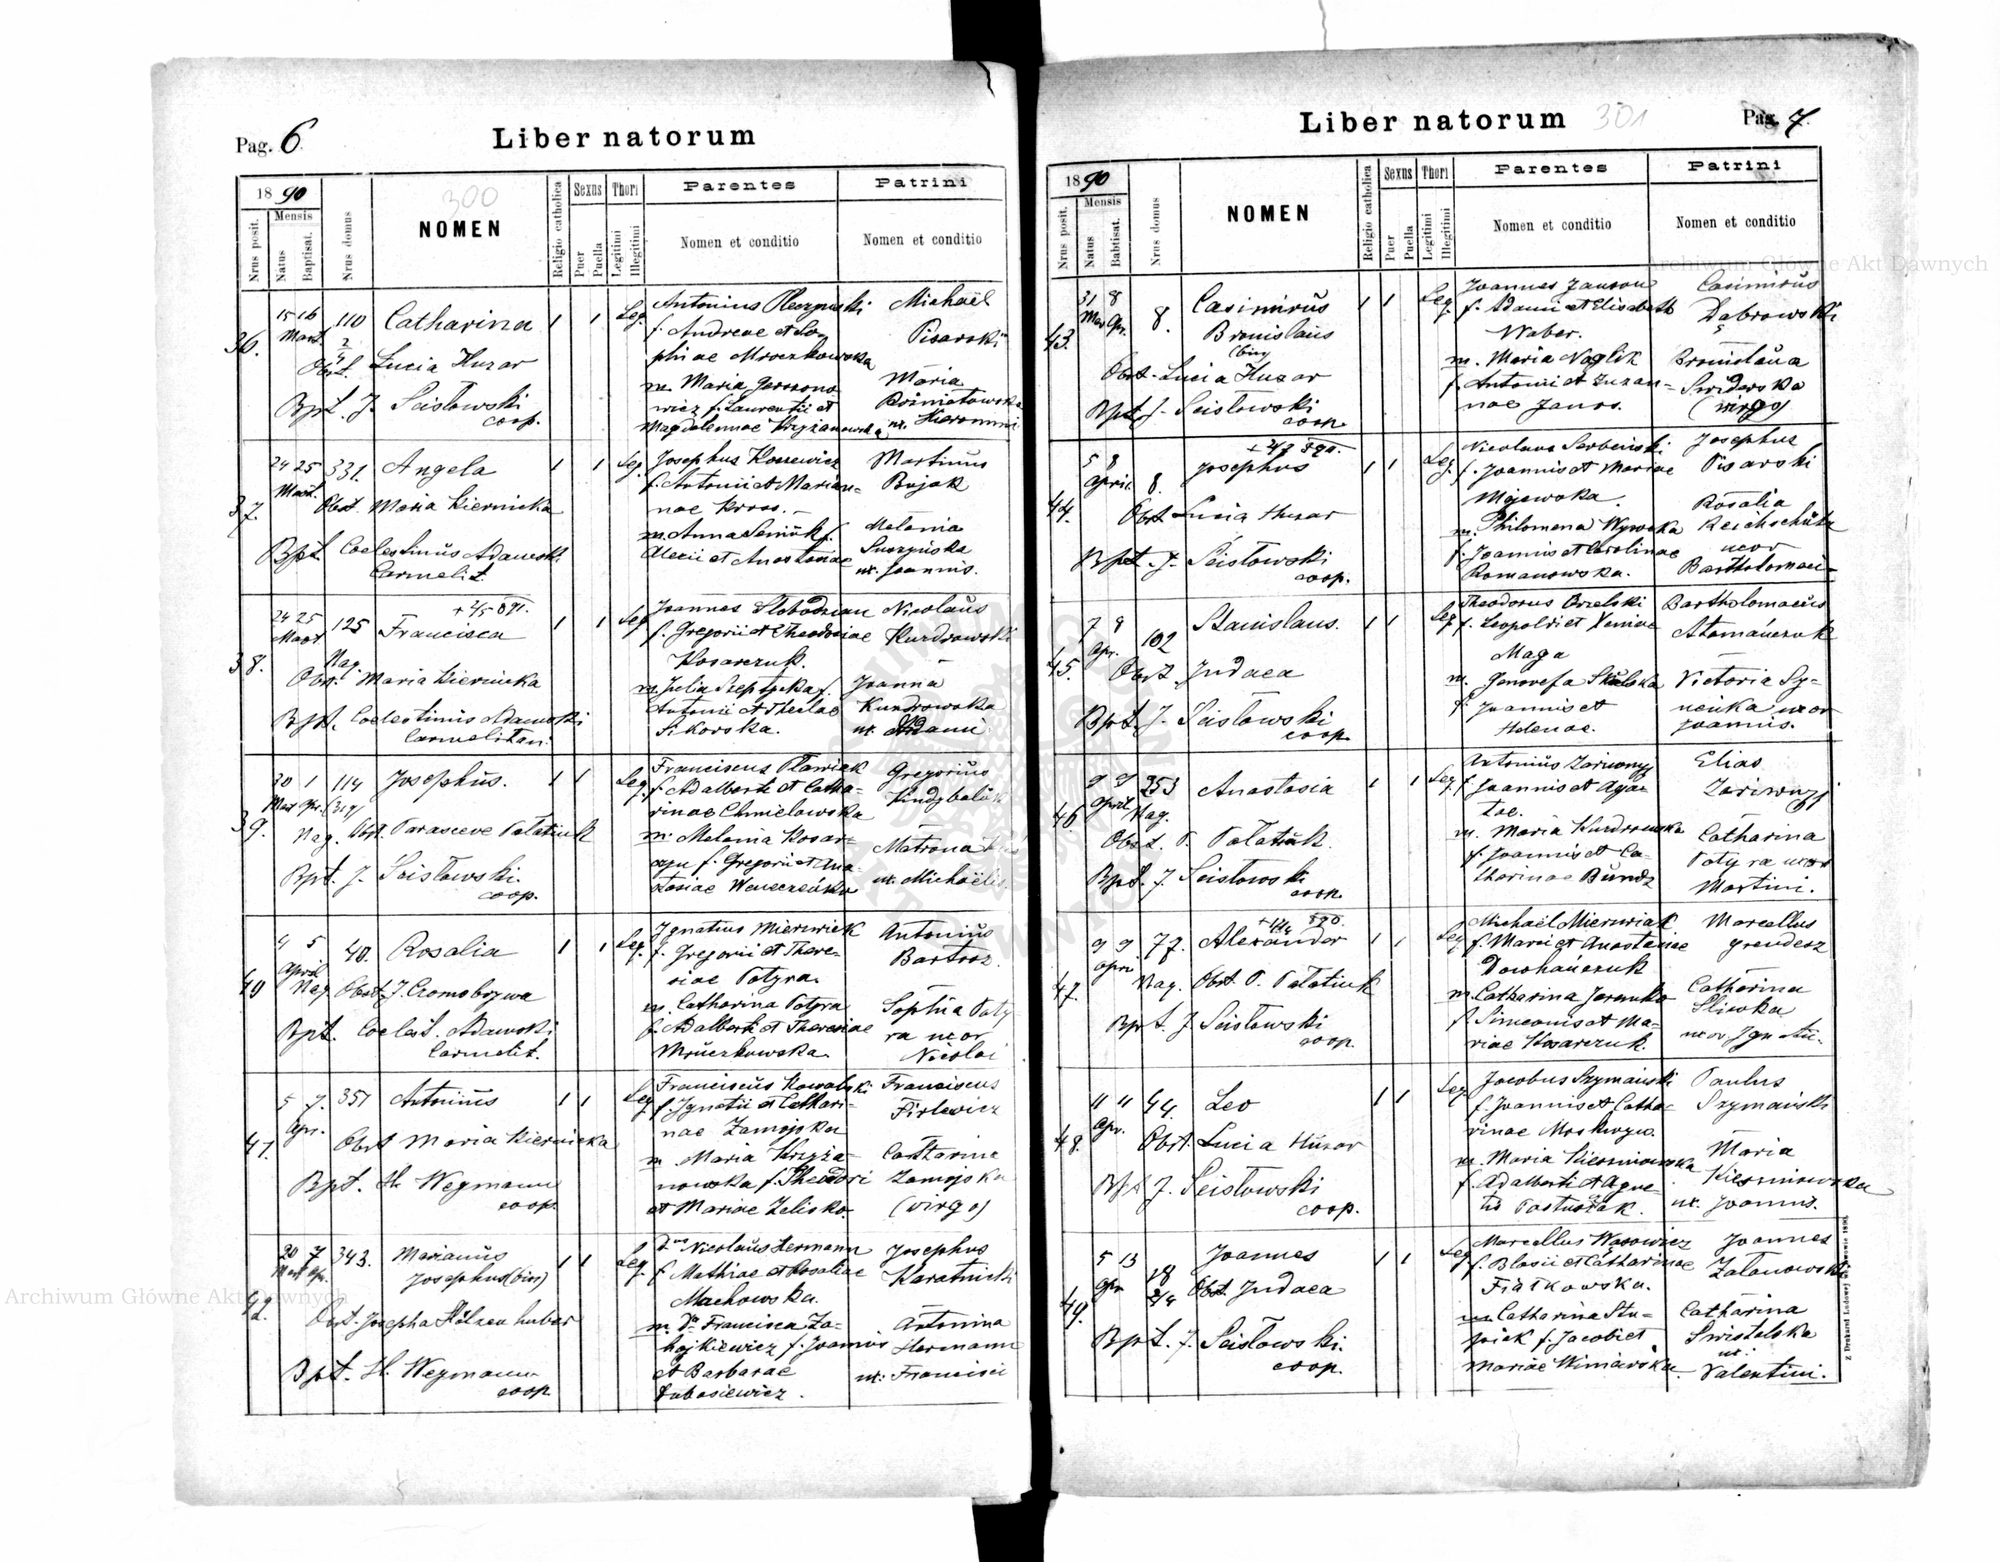 Pag. 6
Liber natorum
1890
Nrus posit.
Mensis
Natus
Baptisat.
Nrus domus
300
NOMEN
Religio catholica
Sexus
Puer
Puella
Thori
Legitimi
Illegitimi
Parentes
Nomen et conditio
Patrini
Nomen et conditio
36.
15 16
Mart.
110
Catharina
1 1
Leg.
Obst. Lucia Huzar
Bpt. J. Scisłowski
coop.
Antonius
f. Andreae et So-
phiae Mroczkowska
m. Maria Jarzono
wicz f. Laurentii et
Magdalenae Krzyżanowska
Michaël
Pisarski
Maria
ux. Hieronimi
37.
24 25
Mart.
331.
Angela
1 1
Leg.
Obst. Maria Kiernicka
Bpt. Coelestinus Adamski
Carmelit.
Josephus
f. Antonii et Marian-
nae
m. Anna
Alexii et Anastasiae
Martinus
Bujak
Melania
ux. Joannis.
38.
24 25
Mart
125
Nag.
+ 2/5 891.
Francisca
1 1
Leg.
Obst. Maria Kiernicka
Bpt. Coelestinus Adamski
Carmelitan.
Joannes Slobodzian
f. Gregorii et Theodosiae
Kosarczuk.
m. Julia Szeptycka f.
Antonii et Theclae
Sikorska.
Nicolaus
Kurdrowski
Joanna
Kurdrowska
ux. Adami
39.
30 1
Mart Apr.
114
(317)
Josephus.
1 1
Leg.
Nag. Obst. Parasceve Palatiuk
Bpt. J. Scisłowski.
coop.
Franciscus
f. Adalberti et Catha-
rinae Chmielowska
m. Melania Kosar-
f. Gregorii et Ana-
stasiae
Gregorius
Kindzbaliuk
Matrona
ux. Michaëlis
40
4 5
April
40.
Rosalia
1 1
Leg.
Nag Obst. J. Czornobrywa
Bpt. Coelest. Adamski
Carmelit.
Ignatius Mierzwiek
f. Gregorii et There-
siae Potyra.
m. Catharina Potyra
f. Adalberti et Theresiae
Mruczkowska.
Antonius
Bartosz.
Sophia Poty
ra uxor
Nicolai
41.
5 7.
Apr.
351
Antonius
1 1
Leg
Obst Maria Kiernicka
Bpt. H. Wegmann
coop.
Franciscus Kowalski
f. Ignatii et Cathari-
nae Zamojska
m. Maria Krzyża-
nowska f. Theodori
et Mariae Zelisko.
Franciscus
Firlewicz
Catharina
Zamojska
(virgo)
42.
30 7
Mart Apr.
343.
Marianus
Josephus (bin)
1 1
Leg.
Obst. Josepha Hölzenhuber
Bpt. H. Wegmann
coop.
Nicolaus Hermann
f. Mathiae et Rosaliae
Machowska.
m. Francisca Za-
hajkiewicz f. Joannis
et Barbarae
Łukasiewicz.
Josephus
Karatnicki
Antonina
Hermann
ux. Francisci
Liber natorum
301
Pag. 7.
1890
Nrus posit.
Mensis
Natus
Babtisat.
Nrus domus
NOMEN
Religio catholica
Sexus
Puer
Puella
Thori
Legitimi
Illegitimi
Parentes
Nomen et conditio
Patrini
Nomen et conditio
43.
31 8
Mar Apr.
8.
Casimirus
Bronislaus
(bin)
1 1
Leg.
Obst. Lucia Huzar
Bpt J. Scisłowski
coop.
Joannes
f. Adami et Elisabeth
Waber.
m. Maria Noglik
f. Antonii et Zuzan-
nae Janos.
Casimirus
Dąbrowski
Bronislaua
Swiderska
(virgo)
44.
5 8
April
8.
Josephus
1 1
Leg.
Obst Lucia Huzar
Bpt. J. Scisłowski
coop.
Nicolaus Serbeński
f. Joannis et Mariae
Majewska.
m. Philomena
f. Joannis et Carolinae
Romanowska.
Josephus
Pisarski
Rosalia
Reichschütz
uxor
Bartholomaei
45.
7 9
Apr.
102
Stanislaus.
1 1
Leg.
Obst. Judaea
Bpt. J. Scisłowski
coop.
Theodorus Orzelski
f. Leopoldi et Xeniae
Maga
m. Genovefa
f. Joannis et
Helenae.
Bartholomaeus
Atamańczuk
Victoria Sy-
uxor
Joannis.
46.
9 9
April
253
Nag.
Anastasia
1 1
Leg.
Obst. P. Palatiuk.
Bpt. J. Scisłowski
coop.
Antonius
f. Joannis et Aga-
tae.
m. Maria Kurdrowska
f. Joannis et Ca-
tharinae
Elias
Catharina
Potyra uxor
Martini.
47.
9 9
Apri
77.
Alexander
1 1
Leg.
Nag. Obst. P. Palatiuk
Bpt. J. Scisłowski
coop.
Michaël Mierzwiak
f. Marii et Anastasiae
Dowhańczuk
m. Catharina
f. Simeonis et Ma-
riae Kosarczuk.
Marcellus
Catharina
Sliwka
uxor Ignatii.
48.
11 11
Apr.
44.
Leo
1 1
Leg.
Obst. Lucia Huzar
Bpt J. Scisłowski
coop.
Jacobus Szymański
f. Joannis et Catha-
rinae
m. Maria Kiesniowska
f. Adalberti et Agne-
tis Pastuszak.
Paulus
Szymański
Maria
Kiesniowska
ux. Joannis.
49.
5 13
Apr
Joannes
1 1
Leg
Obst. Judaea
Bpt. J. Scisłowski.
coop.
Marcellus Wąsowicz
f. Blasii et Catharinae
Fiałkowska.
m. Catharina Stu-
f. Jacobi et
Mariae
Joannes
Catharina
Swistelska
ux.
Valentini.
Archiwum Główne Akt Dawnych
Archiwum Główne Akt Dawnych